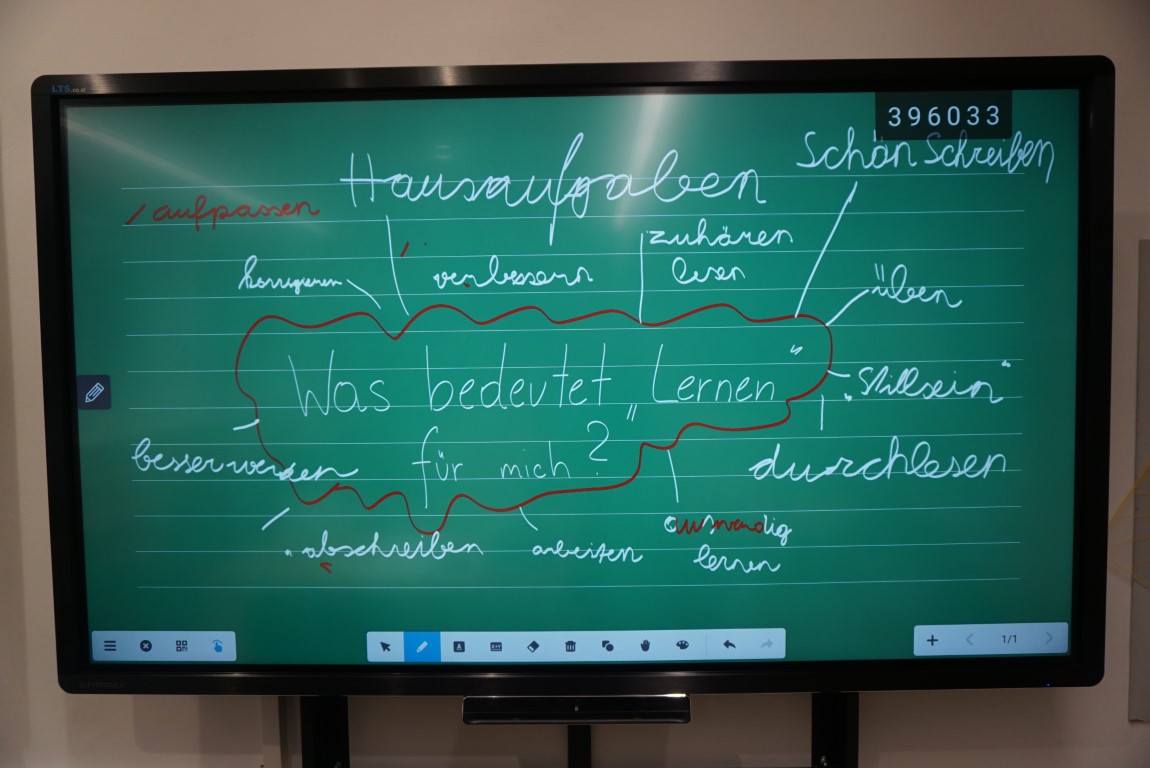 LTS.co.at
396033
Schön Schreiben
Hausaufgaben
/aufpassen
zuhören
korrigieren
verbessern
lesen
üben
Was bedeutet „Lernen“
für mich?
„Stillsein“
besserwerden
durchlesen
auswendig
lernen
abschreiben
arbeiten
1/1